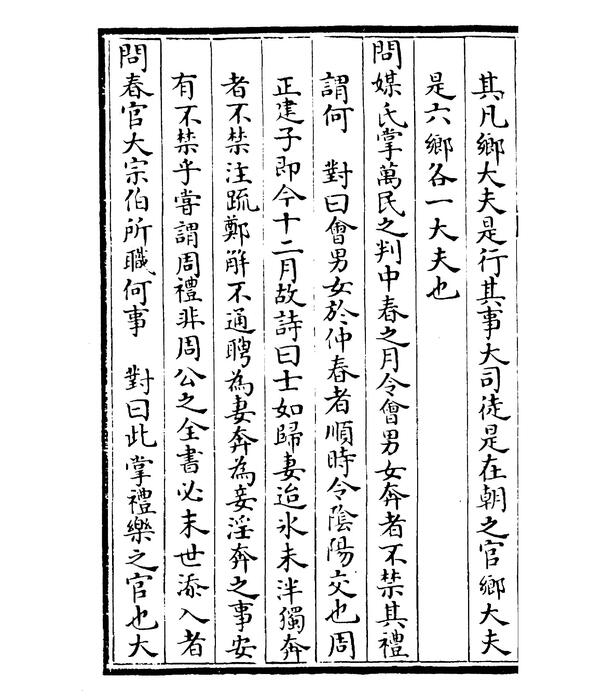 其凡鄉大夫是行其事大司徒是在朝之官鄉大夫
是六鄉各一大夫也
問媒氏掌萬民之判中春之月令㑹男女奔者不禁其禮
謂何　對曰㑹男女於仲春者順時令陰陽交也周
正建子即今十二月故詩曰士如歸妻迨氷未泮獨奔
者不禁注疏鄭解不通聘為妻奔為妾淫奔之事安
有不禁乎嘗謂周禮非周公之全書必末世添入者
問春官大宗伯所職何事　對曰此掌禮樂之官也大